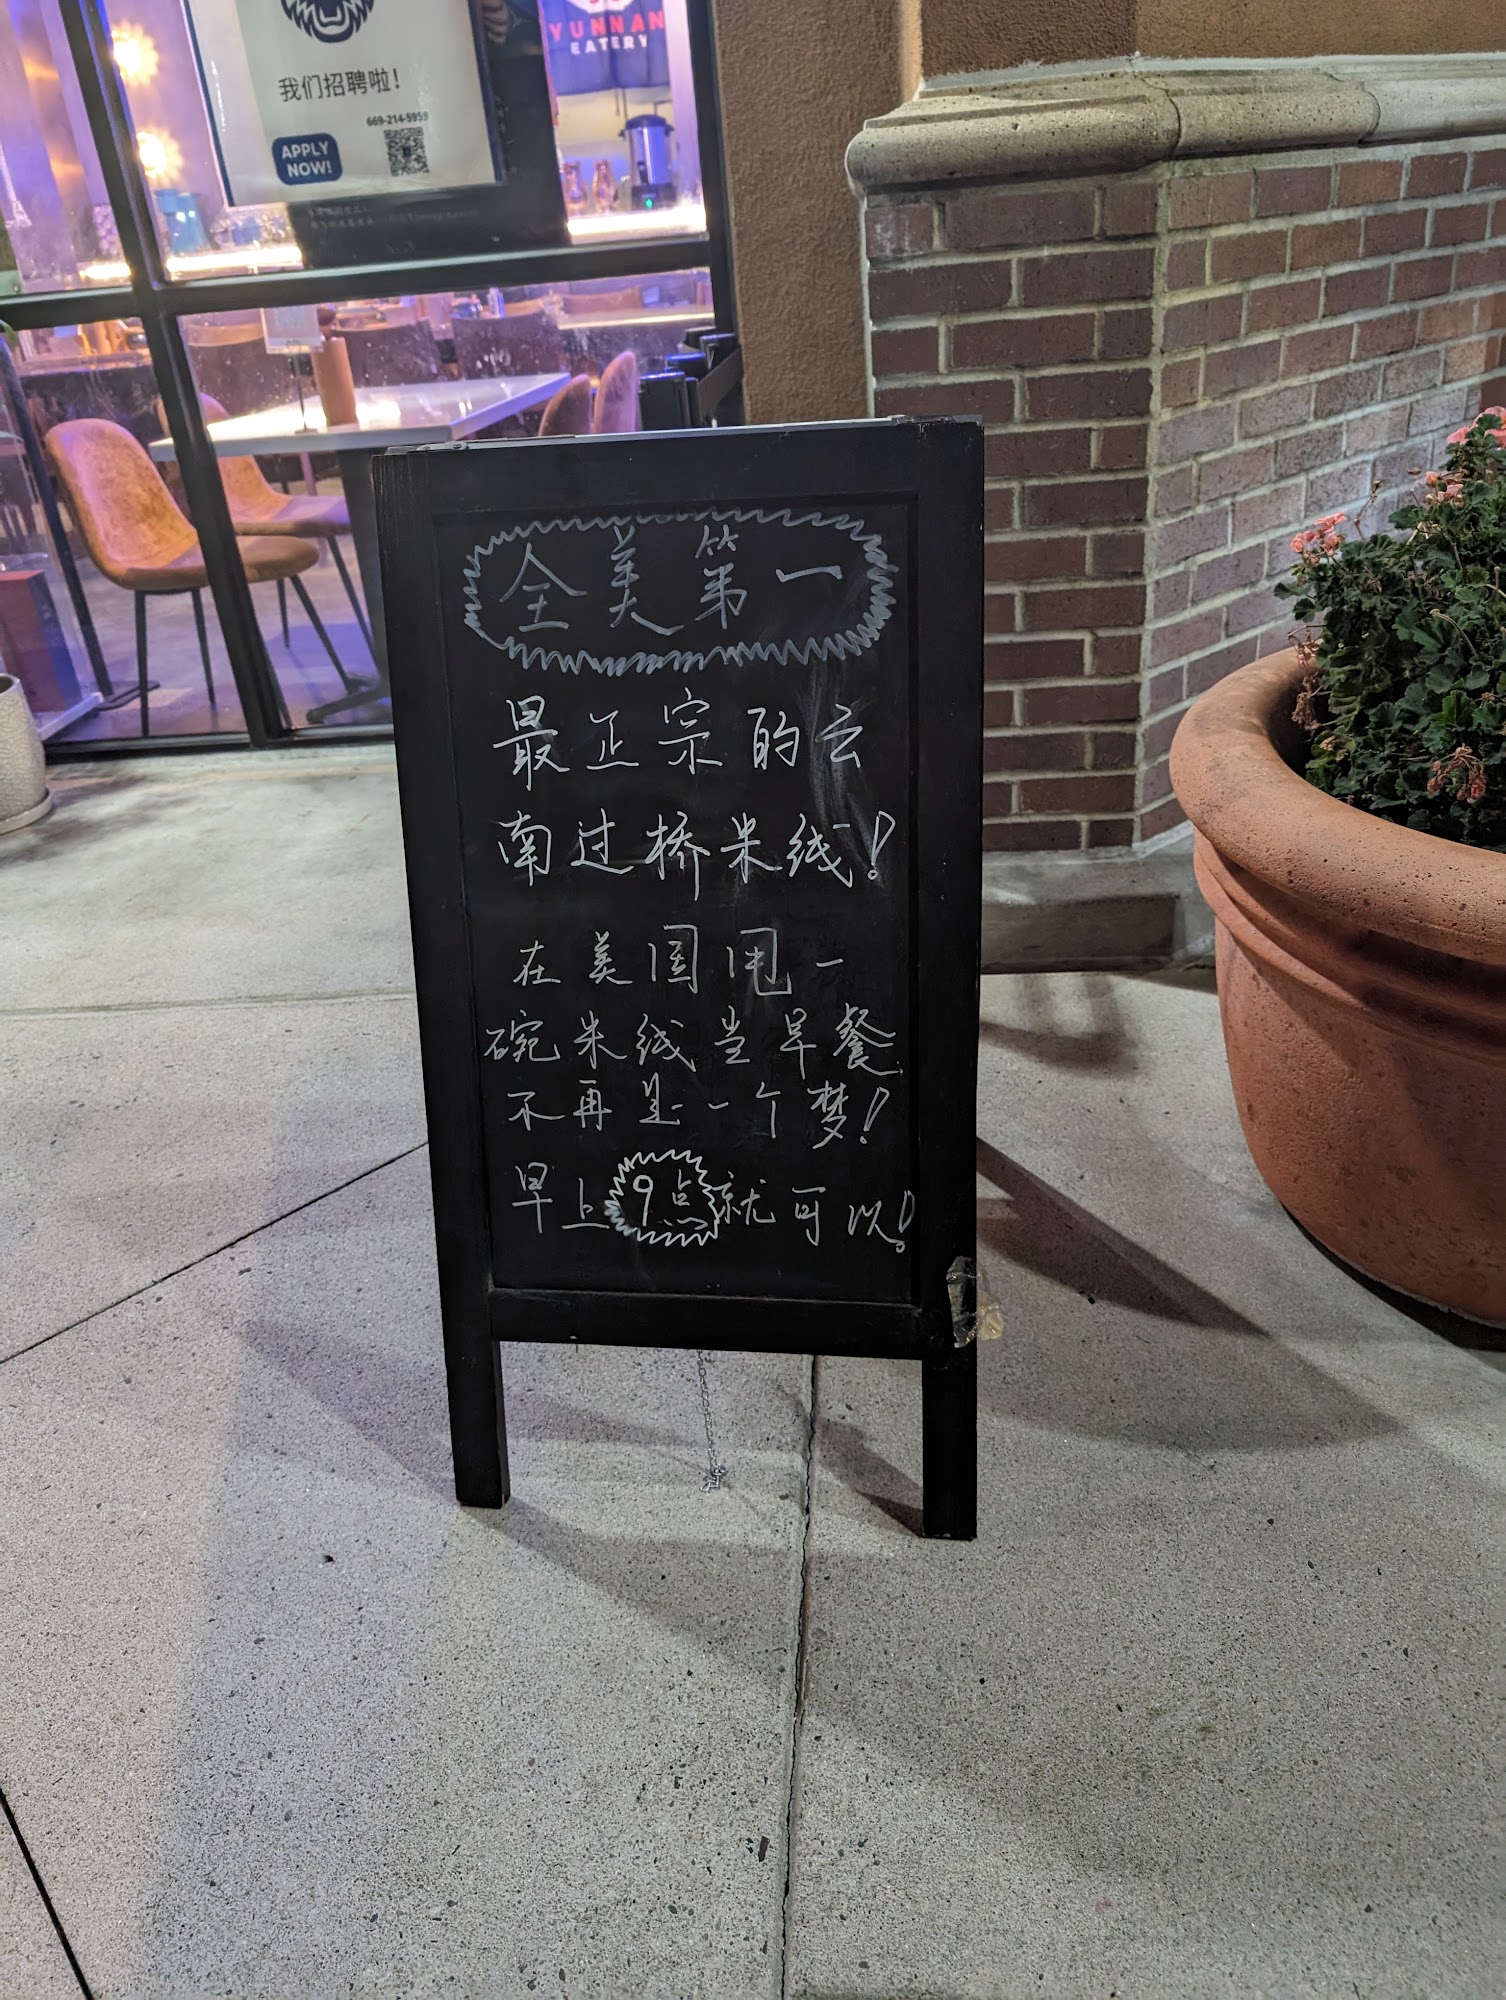 我们招聘啦！
669-214-5959
APPLY
NOW!
YUNNAN
EATERY
全美第一
最正宗的云
南过桥米线！
在美国甩一
碗米线当早餐
不再是一个梦！
早上9点就可以！